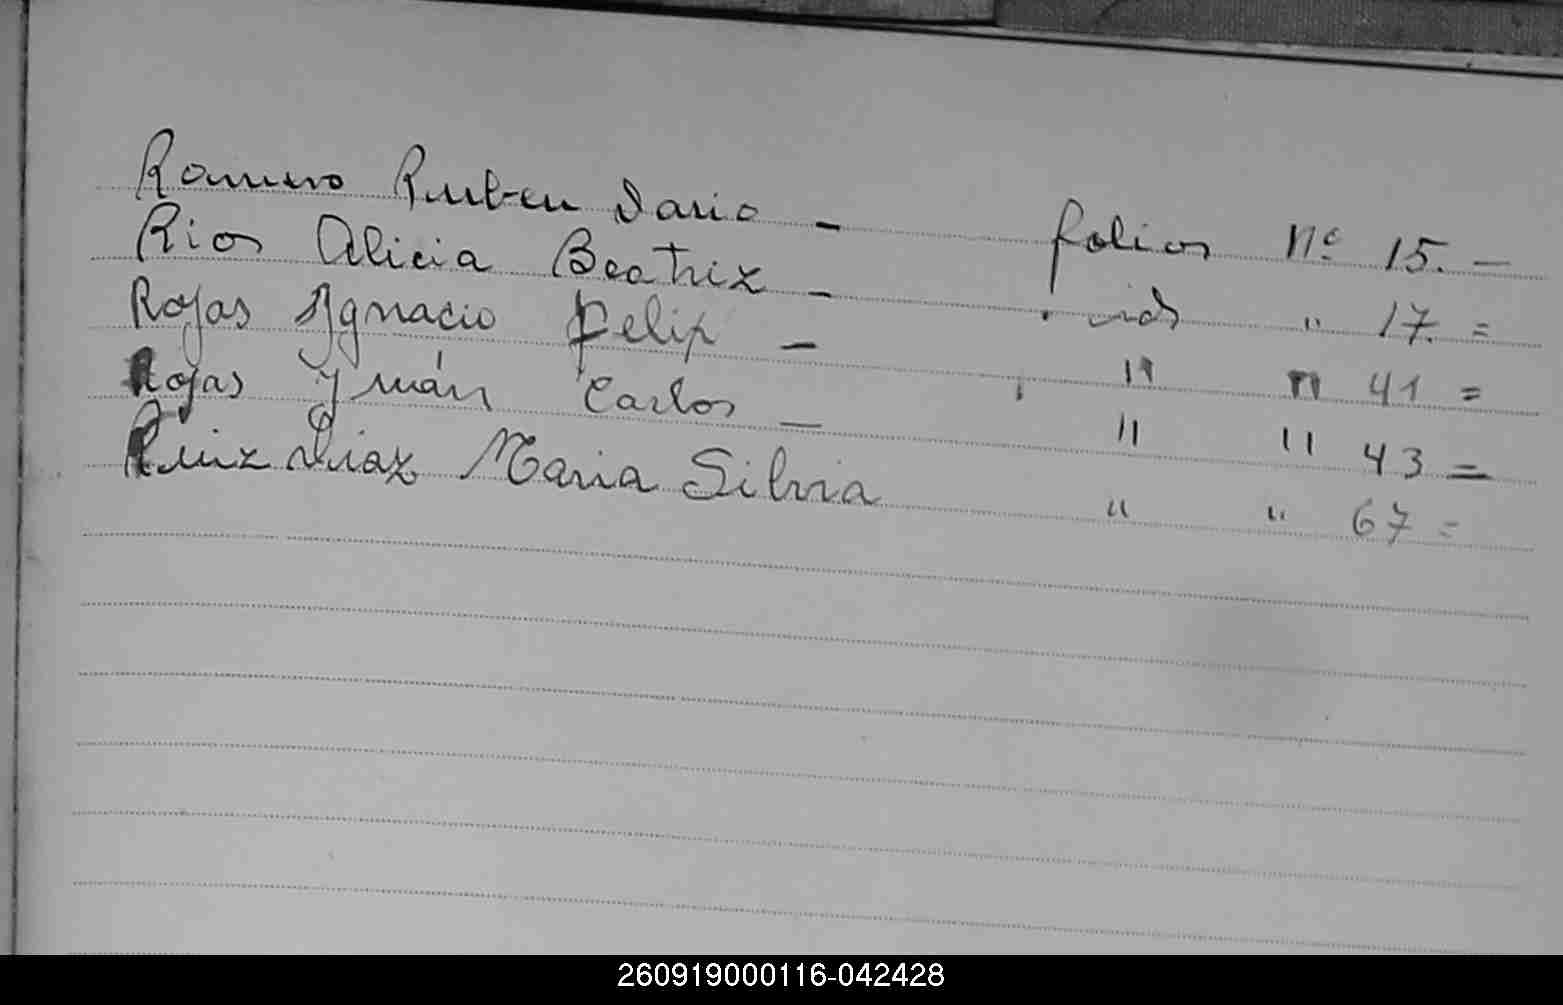 Romero Ruben Dario - folios Nº 15. -
Rios Alicia Beatriz - " 17. =
Rojas Ygnacio Felip - " " 41 =
Rojas Juán Carlos - " " 43 =
Ruiz Diaz Maria Silvia " " 67 =
260919000116-042428